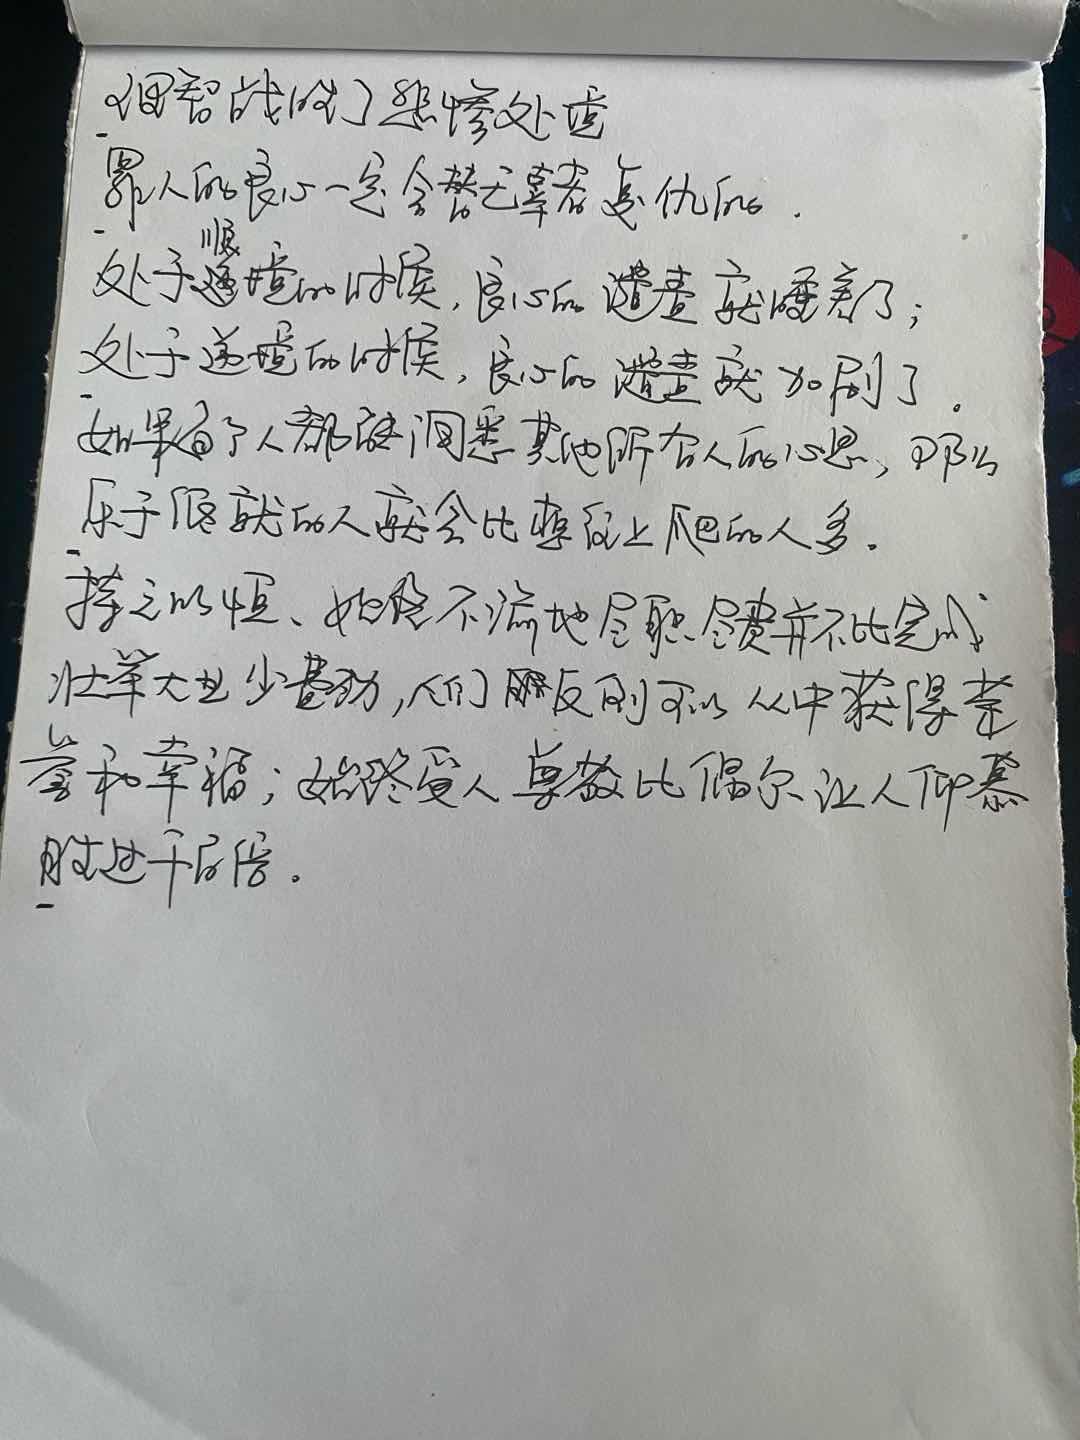 理智战胜了悲惨处境
罪人的良心一定会替无辜者复仇的.
处于顺境的时候,良心的谴责就睡着了;
处于逆境的时候,良心的谴责就加剧了.
如果每个人都能洞悉其他所有人的心思,那么
乐于俯就的人就会比想往上爬的人多.
持之以恒、始终不渝地尽职尽责并不比完成
壮举大业少费劲,人们反则可以从中获得荣
誉和幸福;始终受人尊敬比偶尔让人仰慕
胜过千百倍.